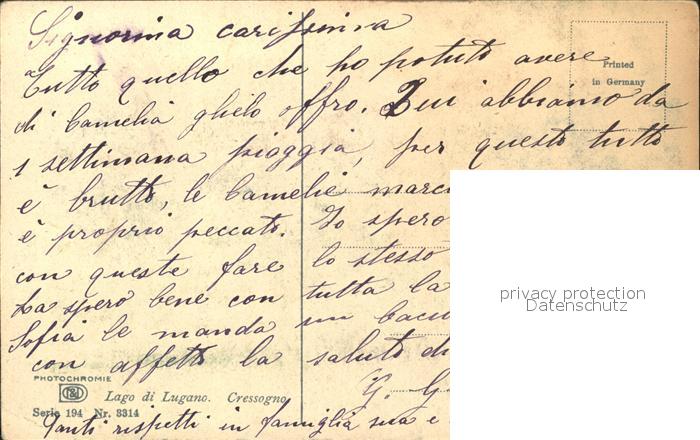 Signorina carissima
Tutto quello che ho potuto avere
di Camelia glielo offro. Qui abbiamo da
1 settimana pioggia, per questo tutto
è brutto, le Camelie marc
è proprio peccato. Io spero
con queste fare lo stesso
La spero bene con tutta la
Sofia le manda un bacio
con affetto la saluto di
G. G
Tanti rispetti in famiglia sua e
Printed
in Germany
privacy protection
Datenschutz
PHOTOCHROMIE
Lago di Lugano. Cressogno
Serie 194 Nr. 3314